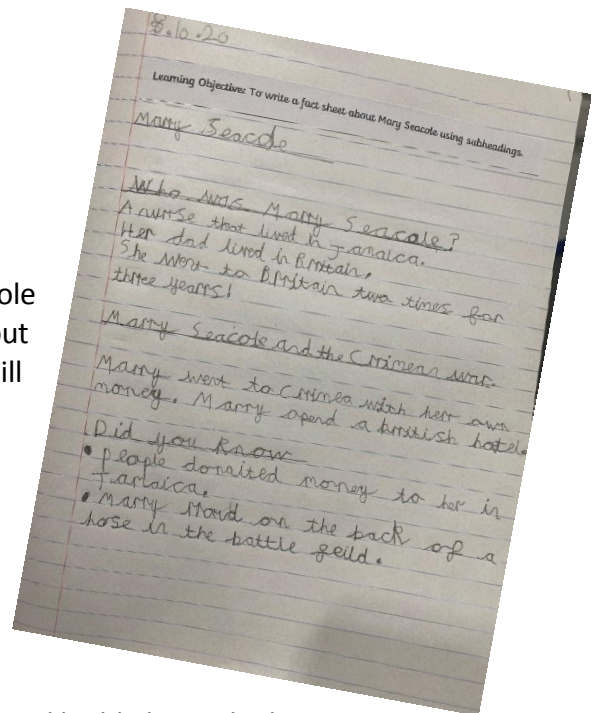 8.10.20
Learning Objective: To write a fact sheet about Mary Seacole using subheadings.
Marry Seacole
Who was Marry Seacole?
A nurse that lived in Jamaica.
Her dad lived in Britain.
She went to Britain two times for
three years!
Marry Seacole and the Crimean war.
Marry went to Crimea with her own
money. Marry opend a british hotel.
Did you know
• people donaited money to her in
Jamaica.
• Marry road on the back of a
hose in the battle feild.
ole
out
ill